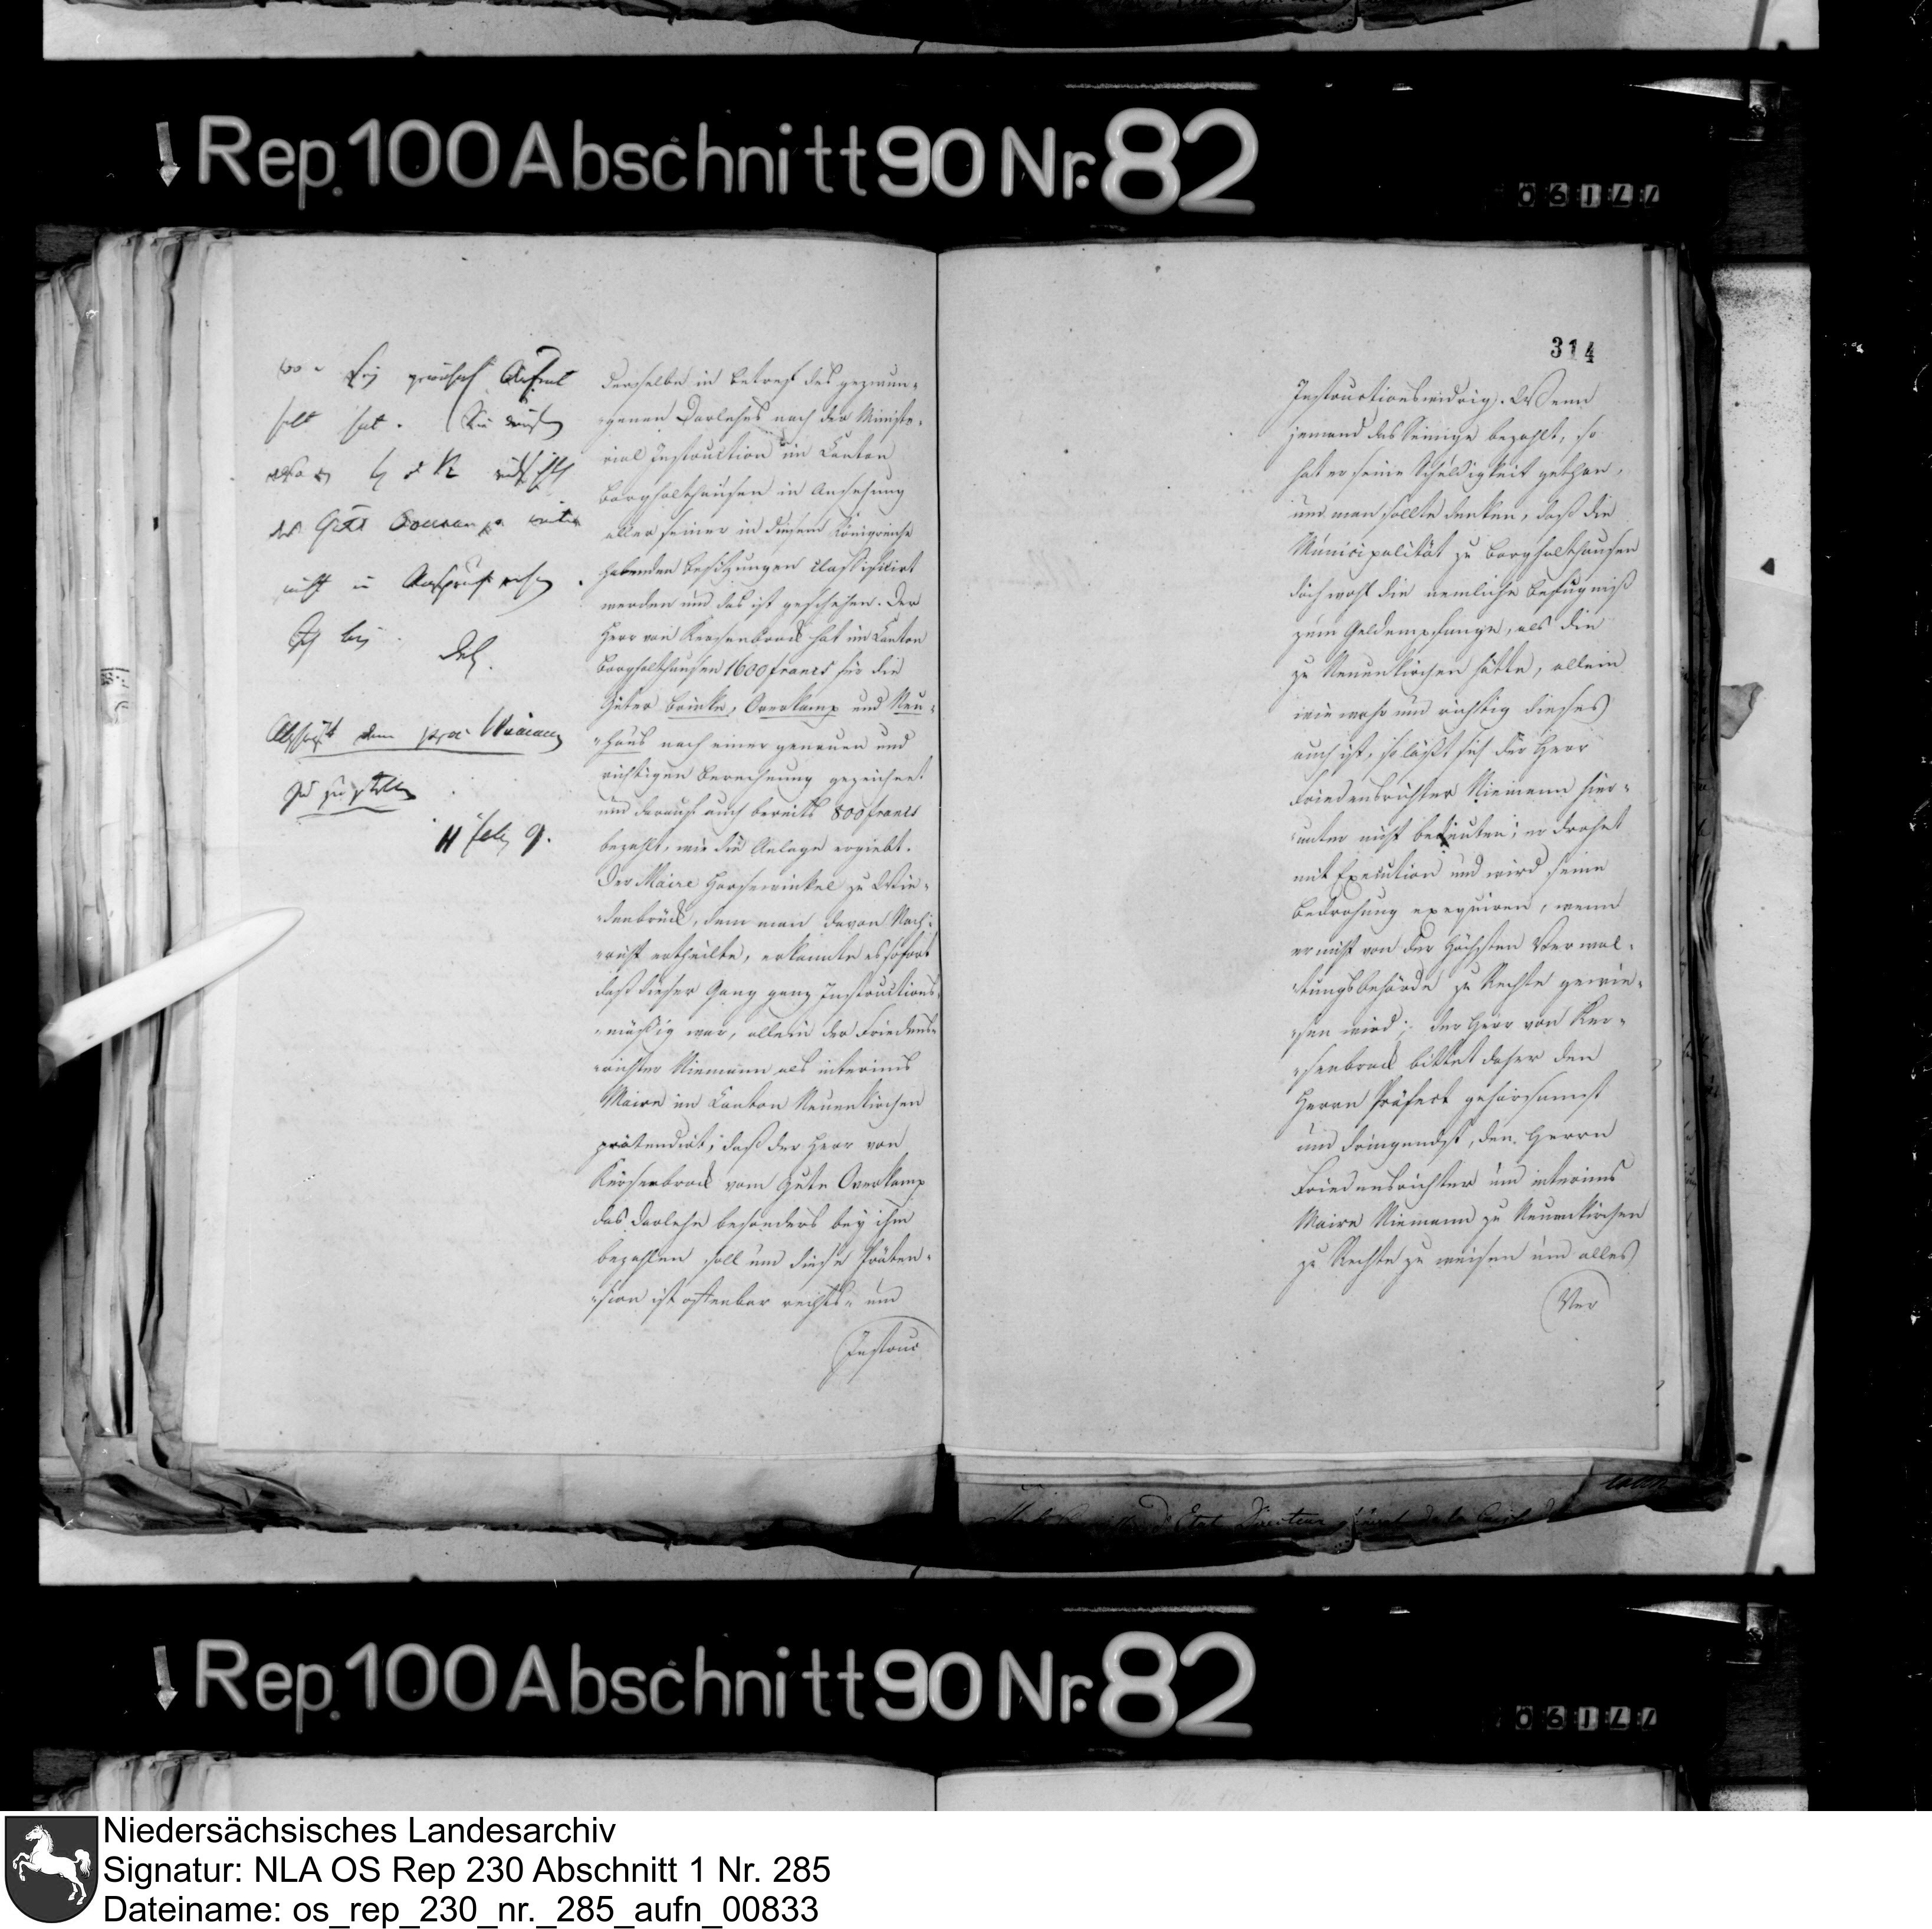 Rep. 100 Abschnitt 90 Nr. 82
hat.
nicht in Anspruch
11 Feb 9.
derselbe in Betreff des gezwun-
-genen Darlehns nach der Ministe-
rial Instruction im Canton
Borgholthausen in Ansehung
aller seiner in diesem Königreiche
habenden Besitzungen classificirt
werden und das ist geschehen. Der
Herr von Kerssenbrock hat im Canton
Borgholthausen 1600 francs für die
Güter Brinke, Overkamp und Neu-
-haus nach einer genauen und
richtigen Berechnung gezeichnet
und darauf auch bereits 800 francs
bezahlt, wie die Anlage ergiebt.
Der Maire Harsewinkel zu Wie-
-denbrück, dem man davon Nach-
-richt ertheilte, erkannte es sofort
daß dieser Gang ganz Instructions-
-mäßig war, allein der Friedens-
-richter Niemann als interims
Maire im Canton Neuenkirchen
prätendirt, daß der Herr von
Kerssenbrock vom Gute Overkamp
das Darlehn besonders bey ihm
bezahlen soll und diese Präten-
-sion ist offenbar rechts- und
Instruc
314
Instructionswidrig. Wenn
jemand das Seinige bezahlt, so
hat er seine Schuldigkeit gethan,
und man sollte denken, daß die
Municipalität zu Borgholthausen
doch wohl die nemliche Befugniß
zum Geldempfange, als die
zu Neuenkirchen hätte, allein
wie wahr und richtig dieses
auch ist, so läßt sich der Herr
Friedensrichter Niemann hier-
-unter nicht bedeuten; er drohet
mit Execution und wird seine
Bedrohung exequiren, wenn
er nicht von der höchsten Verwal-
-tungsbehörde zu Rechte gewie-
-sen wird; der Herr von Ker-
-senbrock bittet daher den
Herrn Präfect gehorsamst
und dringendst, den Herrn
Friedensrichter und interims
Maire Niemann zu Neuenkirchen
zu Rechte zu weisen und alles
Ver
Rep. 100 Abschnitt 90 Nr. 82
Niedersächsisches Landesarchiv
Signatur: NLA OS Rep 230 Abschnitt 1 Nr. 285
Dateiname: os_rep_230_nr._285_aufn_00833